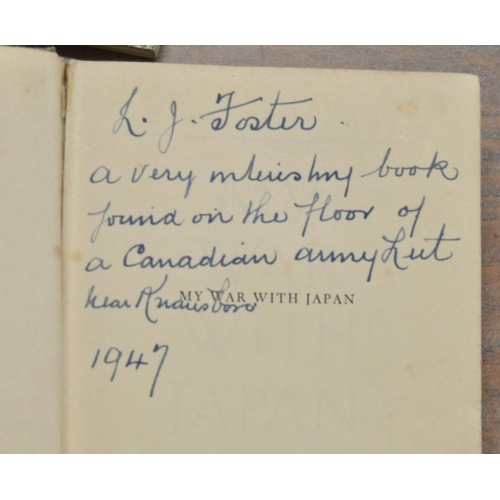 L. J. Foster.
a very interesting book
found on the floor of
a Canadian army Hut
near Knaresboro
MY WAR WITH JAPAN
1947
WITH
JAPAN